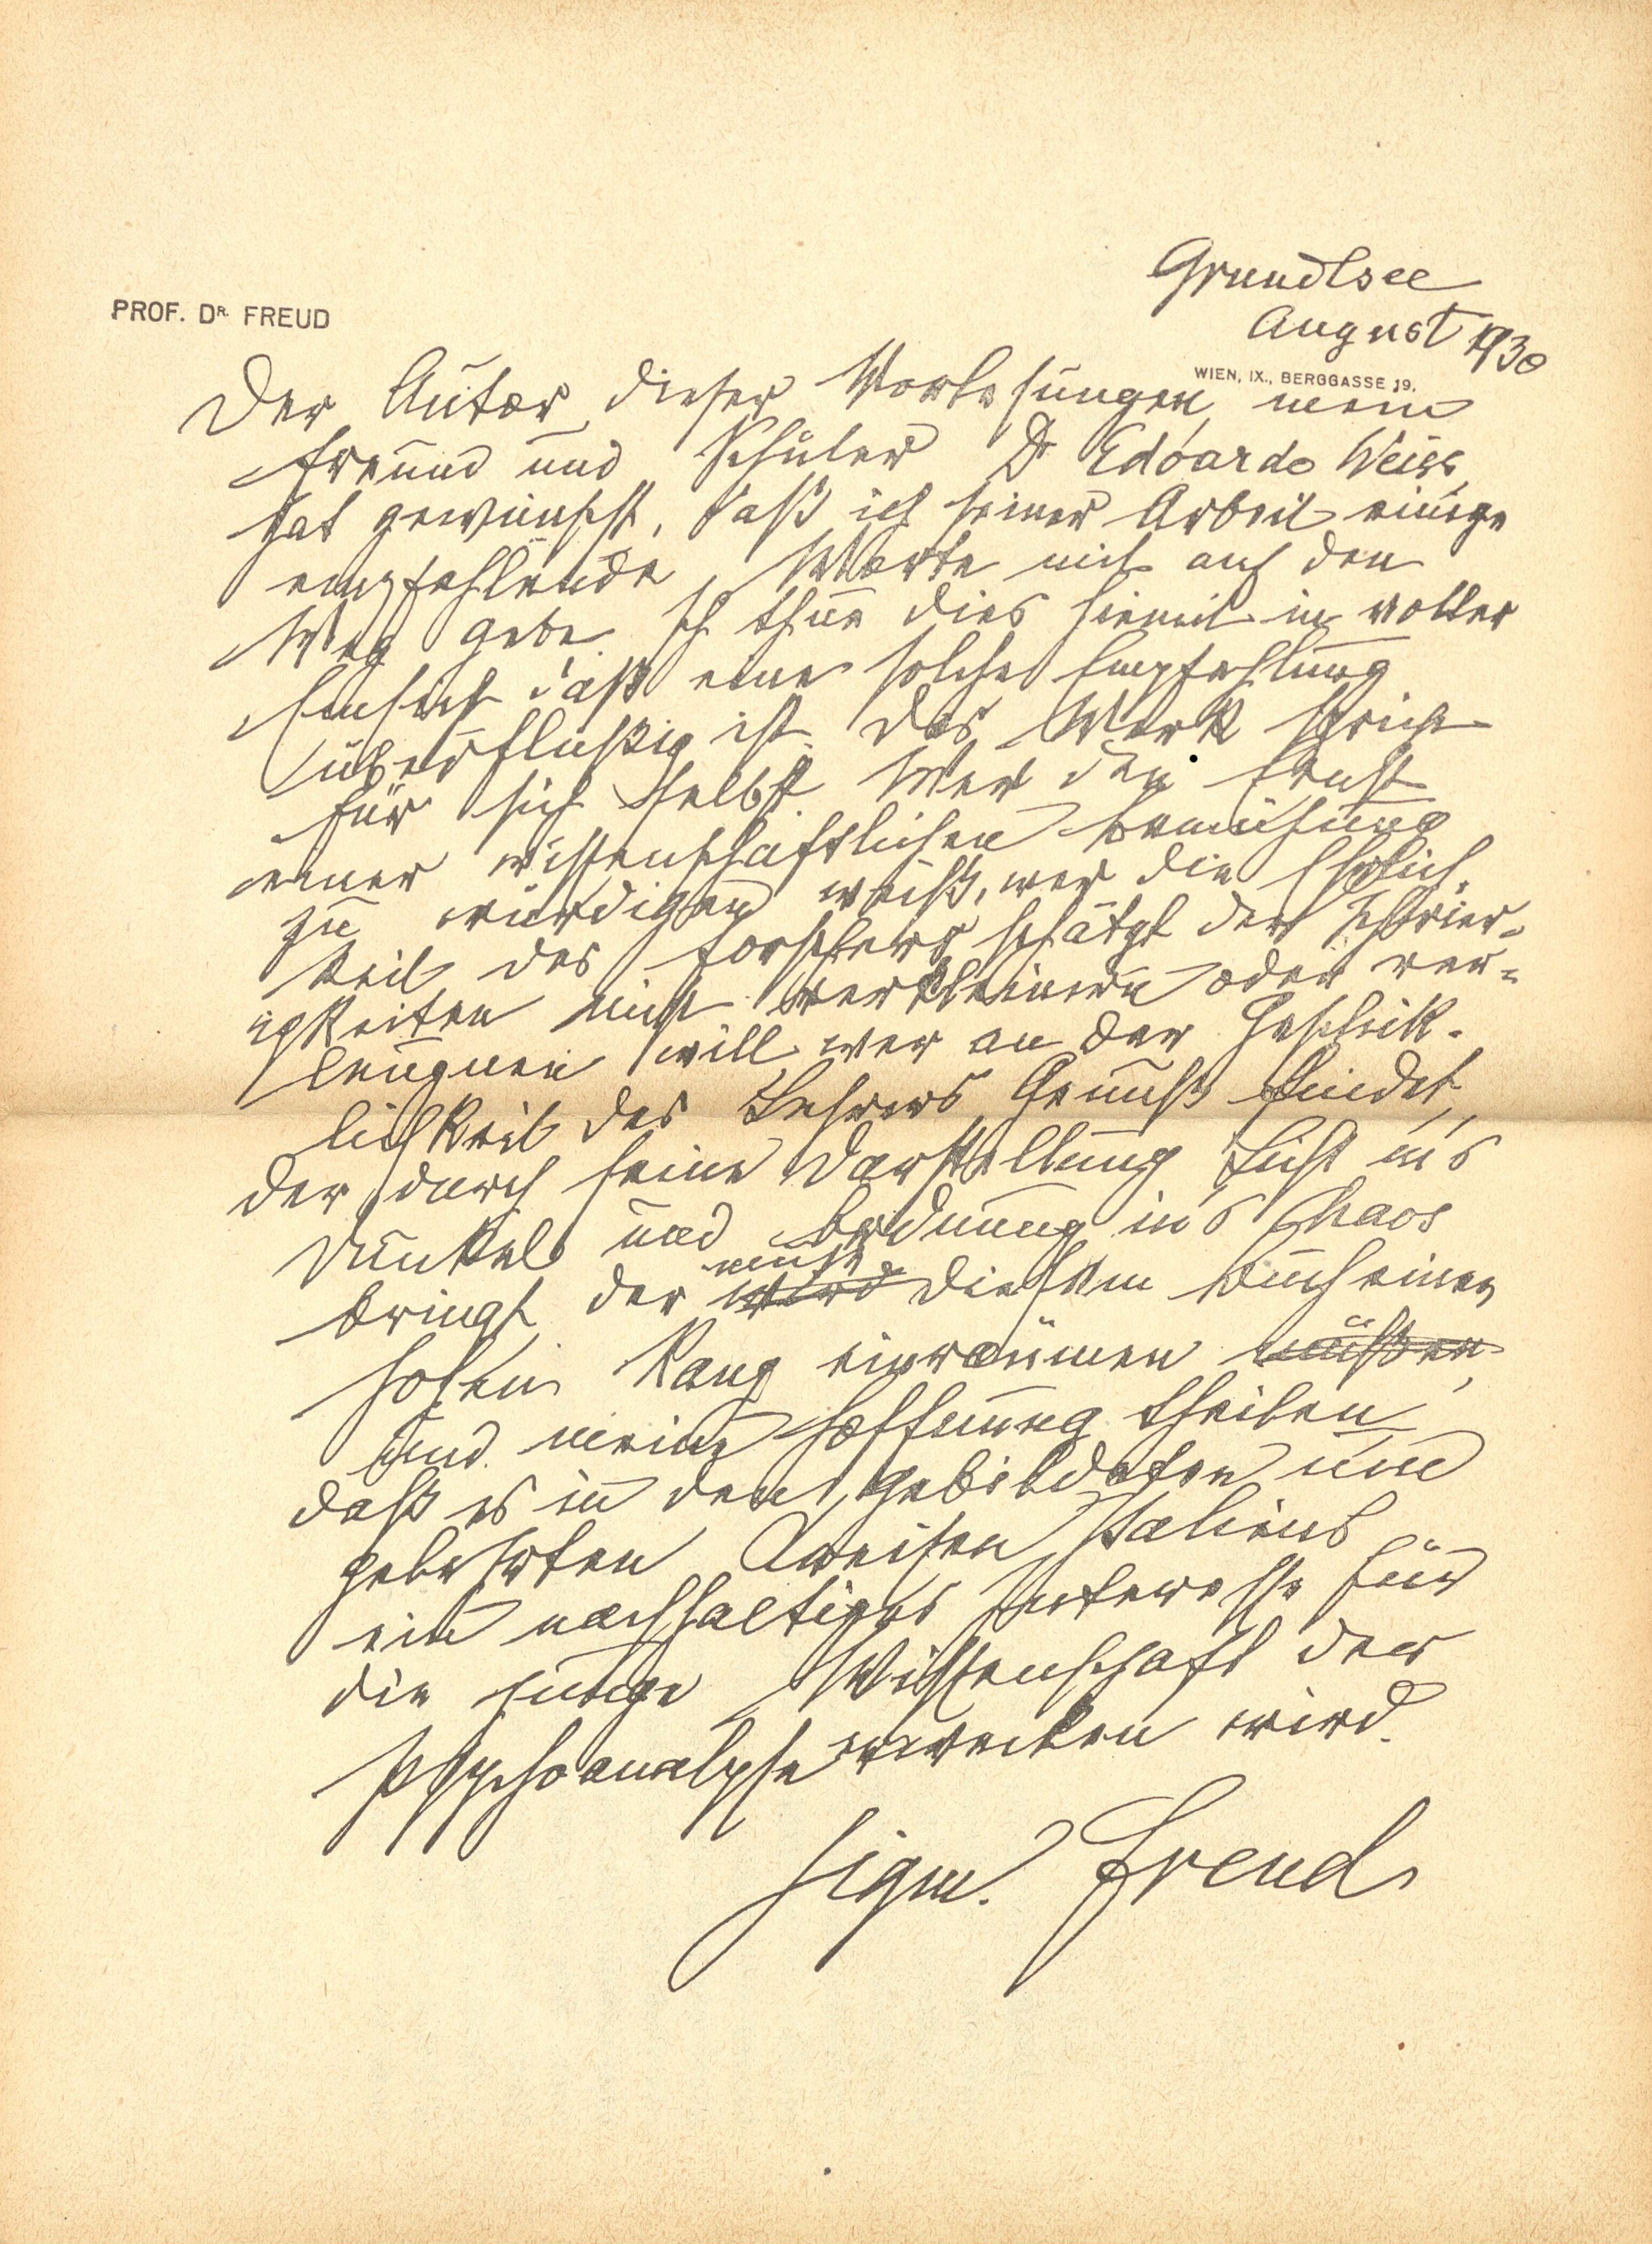 Grundlsee
August 1930
PROF. DR. FREUD
WIEN, IX., BERGGASSE 19.
Der Autor dieser Vorlesungen, mein
Freund und Schüler Dr Edoardo Weiss,
hat gewünscht, daß ich seiner Arbeit einige
empfehlende Worte mit auf den
Weg gebe. Ich thue dies hiemit in voller
Einsicht daß eine solche Empfehlung
überflüßig ist. Das Werk spricht
für sich selbst. Wer den Ernst
einer wissenschaftlichen Bemühung
zu würdigen weiß, wer die Ehrlich-
keit des Forschers schätzt der Schwier-
igkeiten nicht verkleinern oder ver-
leugnen will, wer an der Geschick-
lichkeit des Lehrers Genuß findet,
der durch seine Darstellung Licht in's
Dunkel und Ordnung in's Chaos
bringt, der muß
wird diesem Buch einen
hohen Rang einräumen müßen,
und meine Hoffnung theilen,
daß es in den gebildeten und
gelehrten Kreisen Italiens
ein nachhaltiges Interesse für
die junge Wissenschaft der
Psychoanalyse erwecken wird.
Sigm. Freud